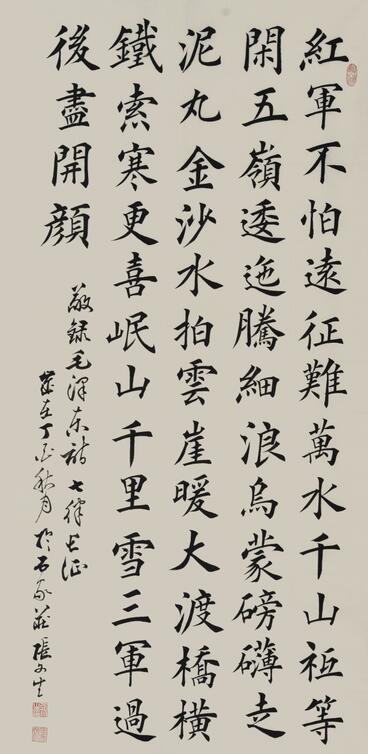 紅軍不怕遠征難萬水千山祇等
閑五嶺逶迤騰細浪烏蒙磅礴走
泥丸金沙水拍雲崖暖大渡橋橫
鐵索寒更喜岷山千里雪三軍過
後盡開顏
敬錄毛澤東詩七律長征
歲在丁酉秋月於石家莊張文生